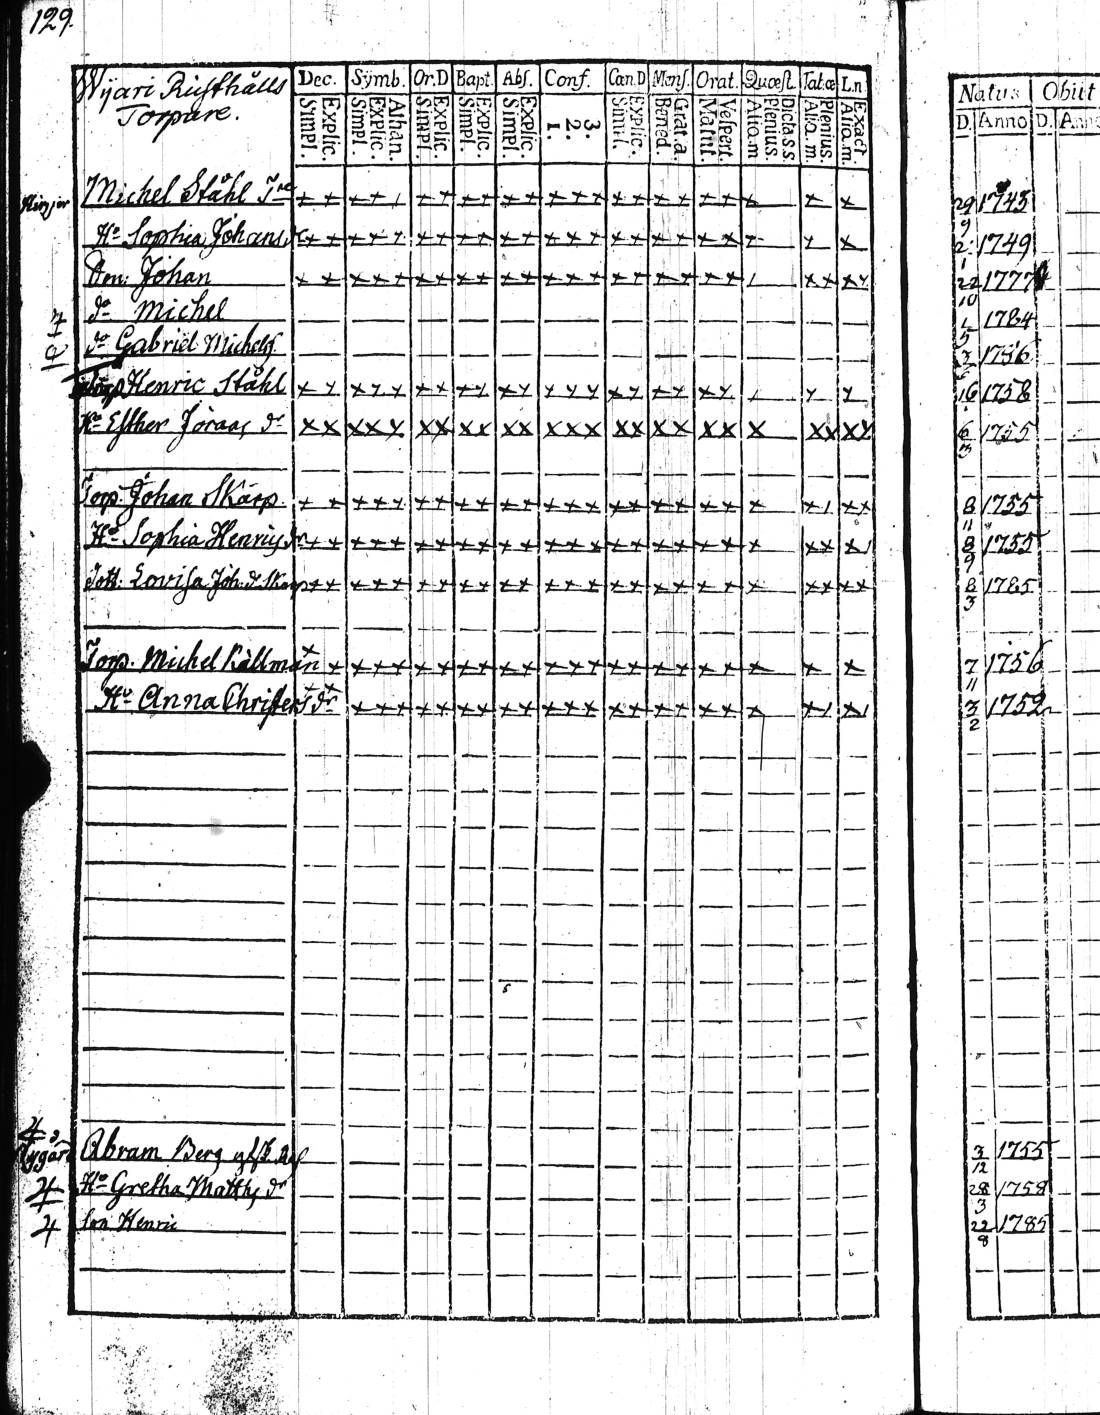 129.
Wijari Rusthålls Dec. Symb. Or.D Bapt. Abs. Conf. Cœn.D Mens. Orat. Quœst. Tab.œ Ln. Natus Obiit
Torpare. Explic. Simpl. Athan. Explic. Simpl. Explic. Simpl. Explic. Simpl. Explic. Simpl. 3. 2. 1. Explic. Simpl. Grat.a. Bened. Vespert. Matut. Dicta.s.s Plenius. Alio.m Plenius. Alio.m. Exact. Alio.m. D. Anno D. Anno
Michel Ståhl 29/9 1743
Hu Sophia Johans dr 2/1 1749
Son Johan 22/10 1777
do Michel 1/5 1784
do Gabriel Michels 3 1786
Henric Ståhl 16 1758
Hu Esther Jörans dr 6/3 1755
Torp. Johan Skarp. 8/11 1755
Hu Sophia Henrics dr 8/9 1755
Dott. Lovisa Joh. dr Skarp 8/3 1785
Torp. Michel Källman 7/11 1756
Hu Anna Christers dr 3/2 1752
Nygård Abram Berg 3/12 1755
Hu Gretha Matths dr 28/3 1758
Son Henric 22/8 1785